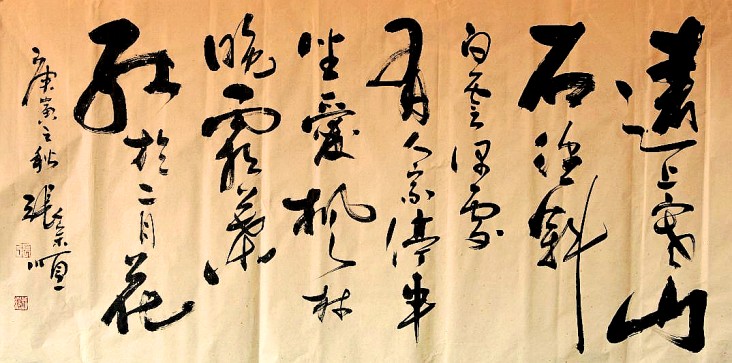 遠上寒山
石徑斜
白雲深處
有人家停車
坐愛楓林
晚霜葉
紅於二月花
庚寅之秋 張順